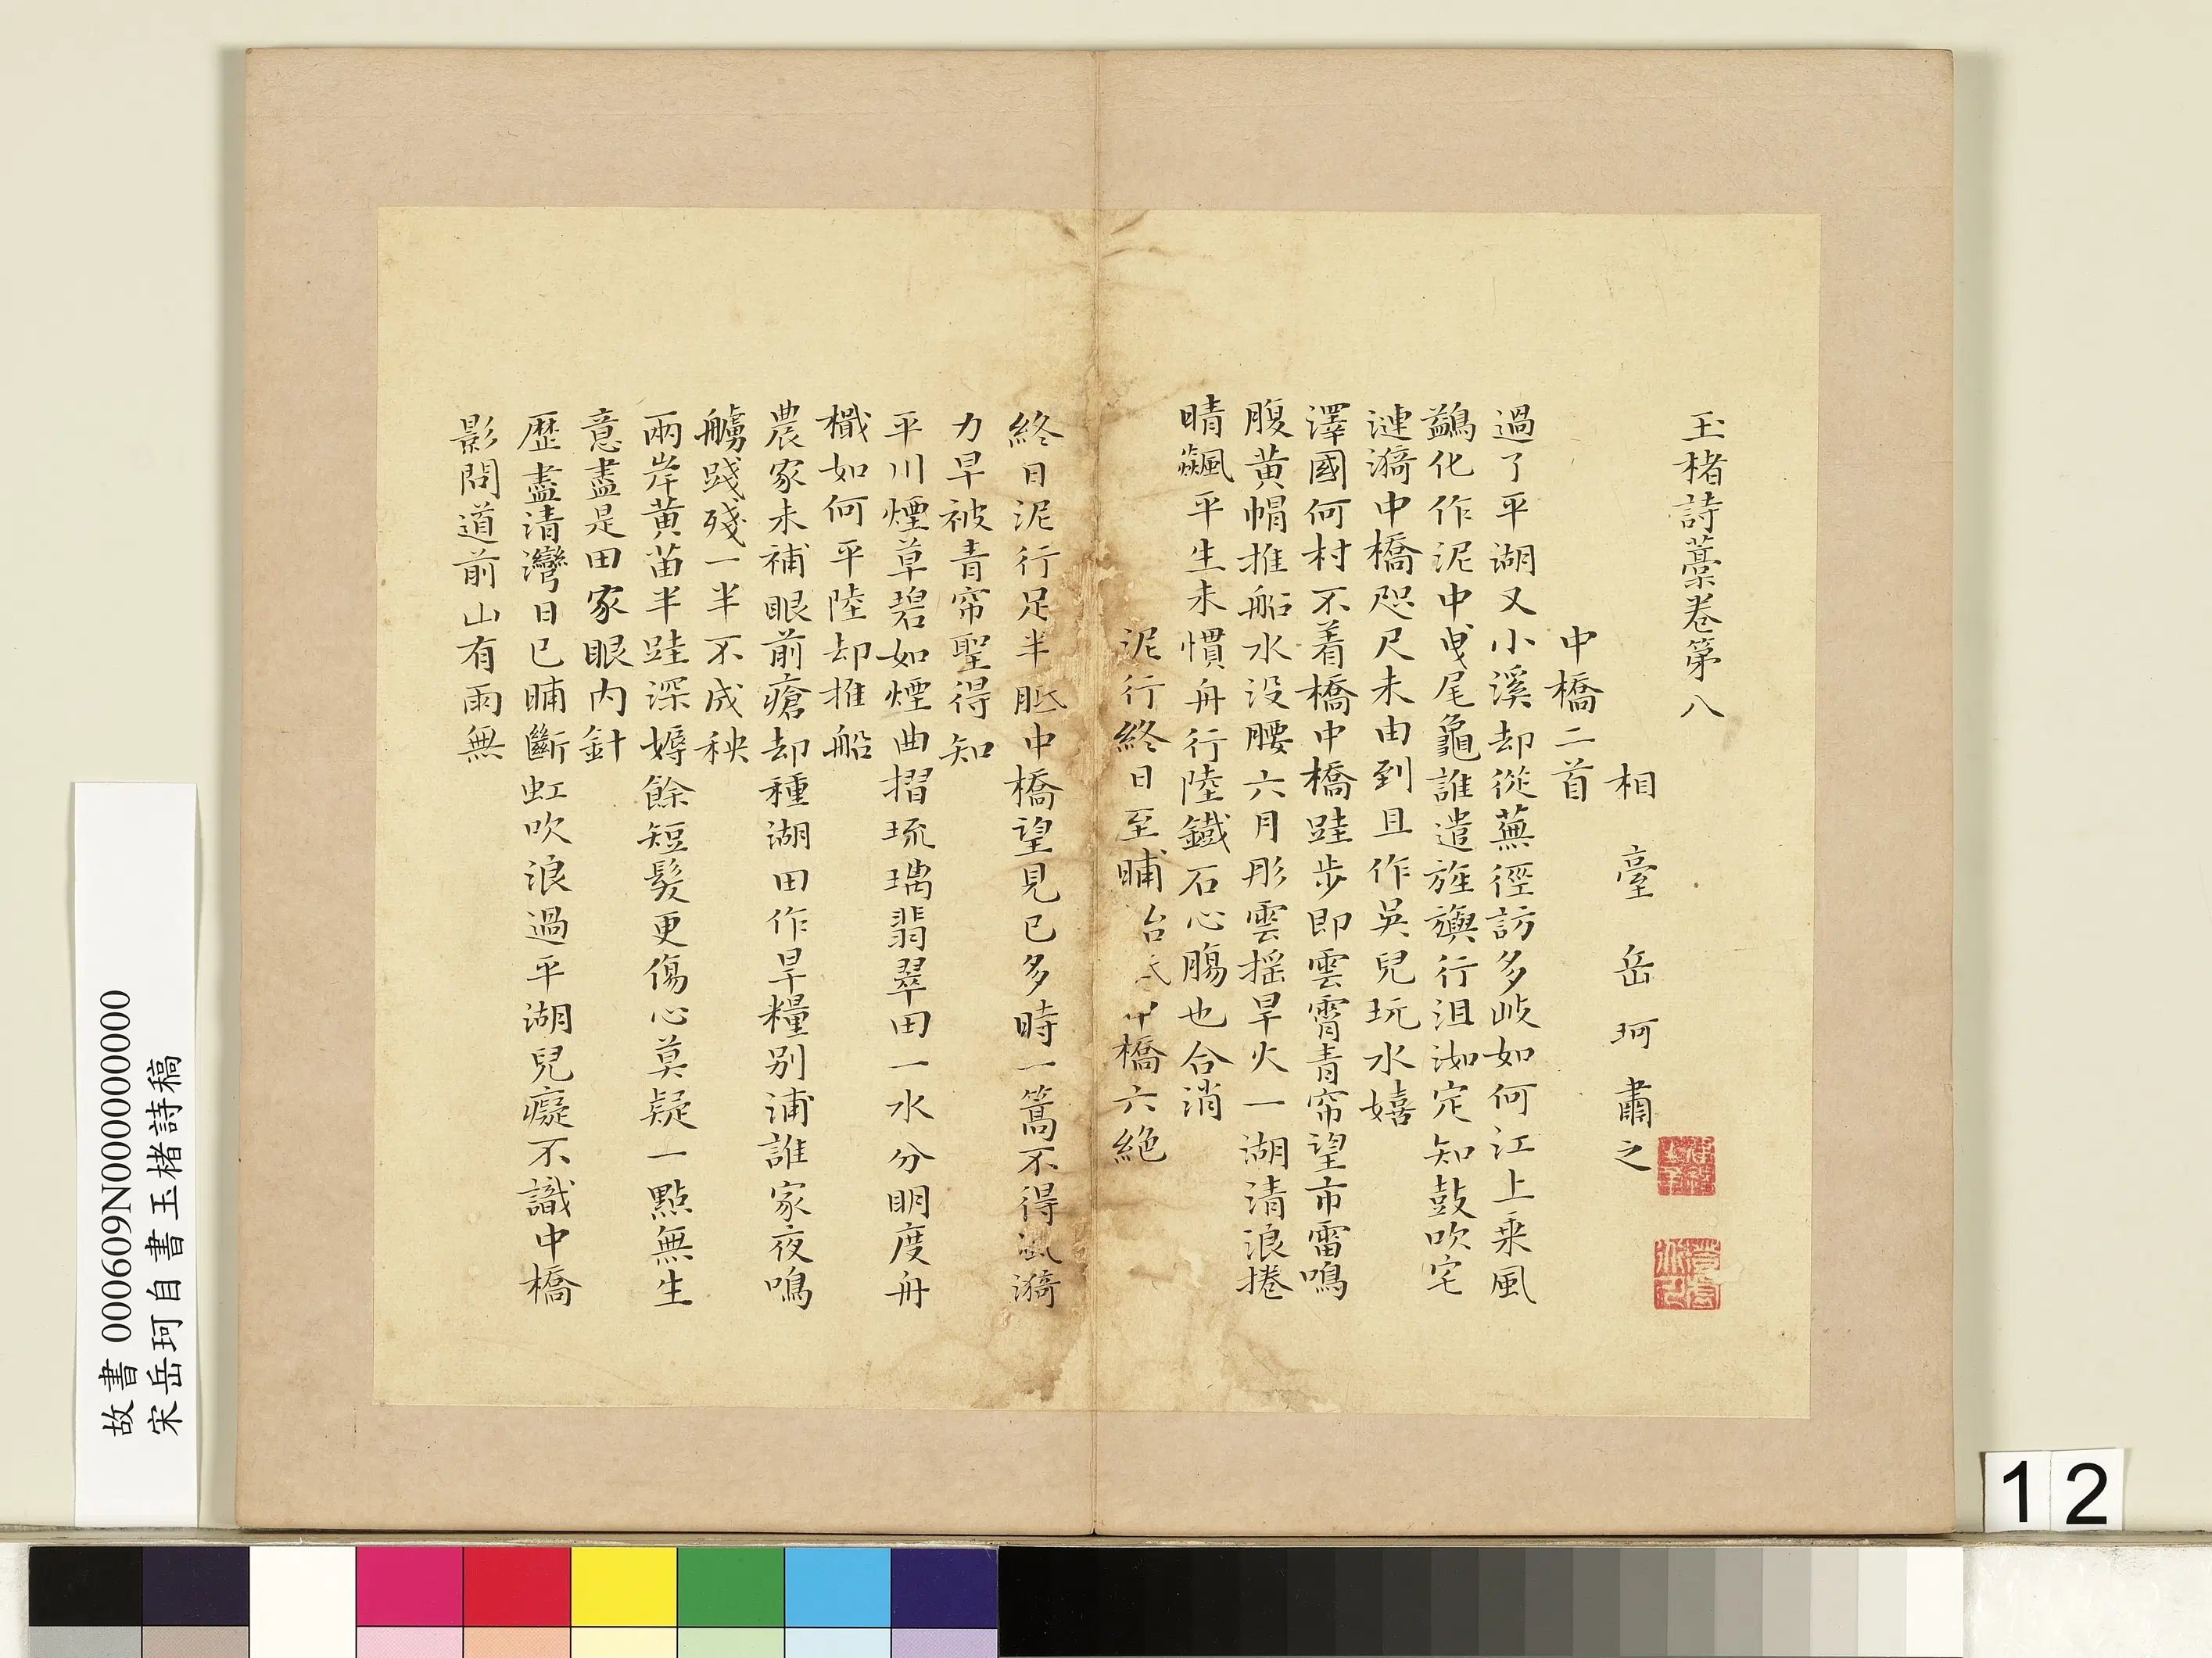 玉楮詩藁卷第八
相臺岳珂肅之
中橋二首
過了平湖又小溪却從蕪徑訪多岐如何江上乗風
鷁化作泥中曳尾龜誰遣旌旟行沮洳定知鼓吹宅
漣漪中橋咫尺未由到且作吳兒玩水嬉
澤國何村不着橋中橋跬步即雲霄青帘望市雷鳴
腹黃帽推船水没腰六月彤雲揺旱火一湖清浪捲
晴飆平生未慣舟行陸鐵石心腸也合消
泥行終日至晡始 中橋六絶
終日泥行足半胝中橋望見已多時一篙不得風漪
力早被青帘聖得知
平川煙草碧如煙曲摺琉璃翡翠田一水分明度舟
檝如何平陸却推船
農家未補眼前瘡却種湖田作旱糧别浦誰家夜鳴
艣踐殘一半不成秧
兩岸黃苗半跬深媷餘短髮更傷心莫疑一點無生
意盡是田家眼内針
歷盡清灣日已晡斷虹吹浪過平湖兒癡不識中橋
影問道前山有雨無
故書 000609N000000000
宋岳珂自書玉楮詩稿
12